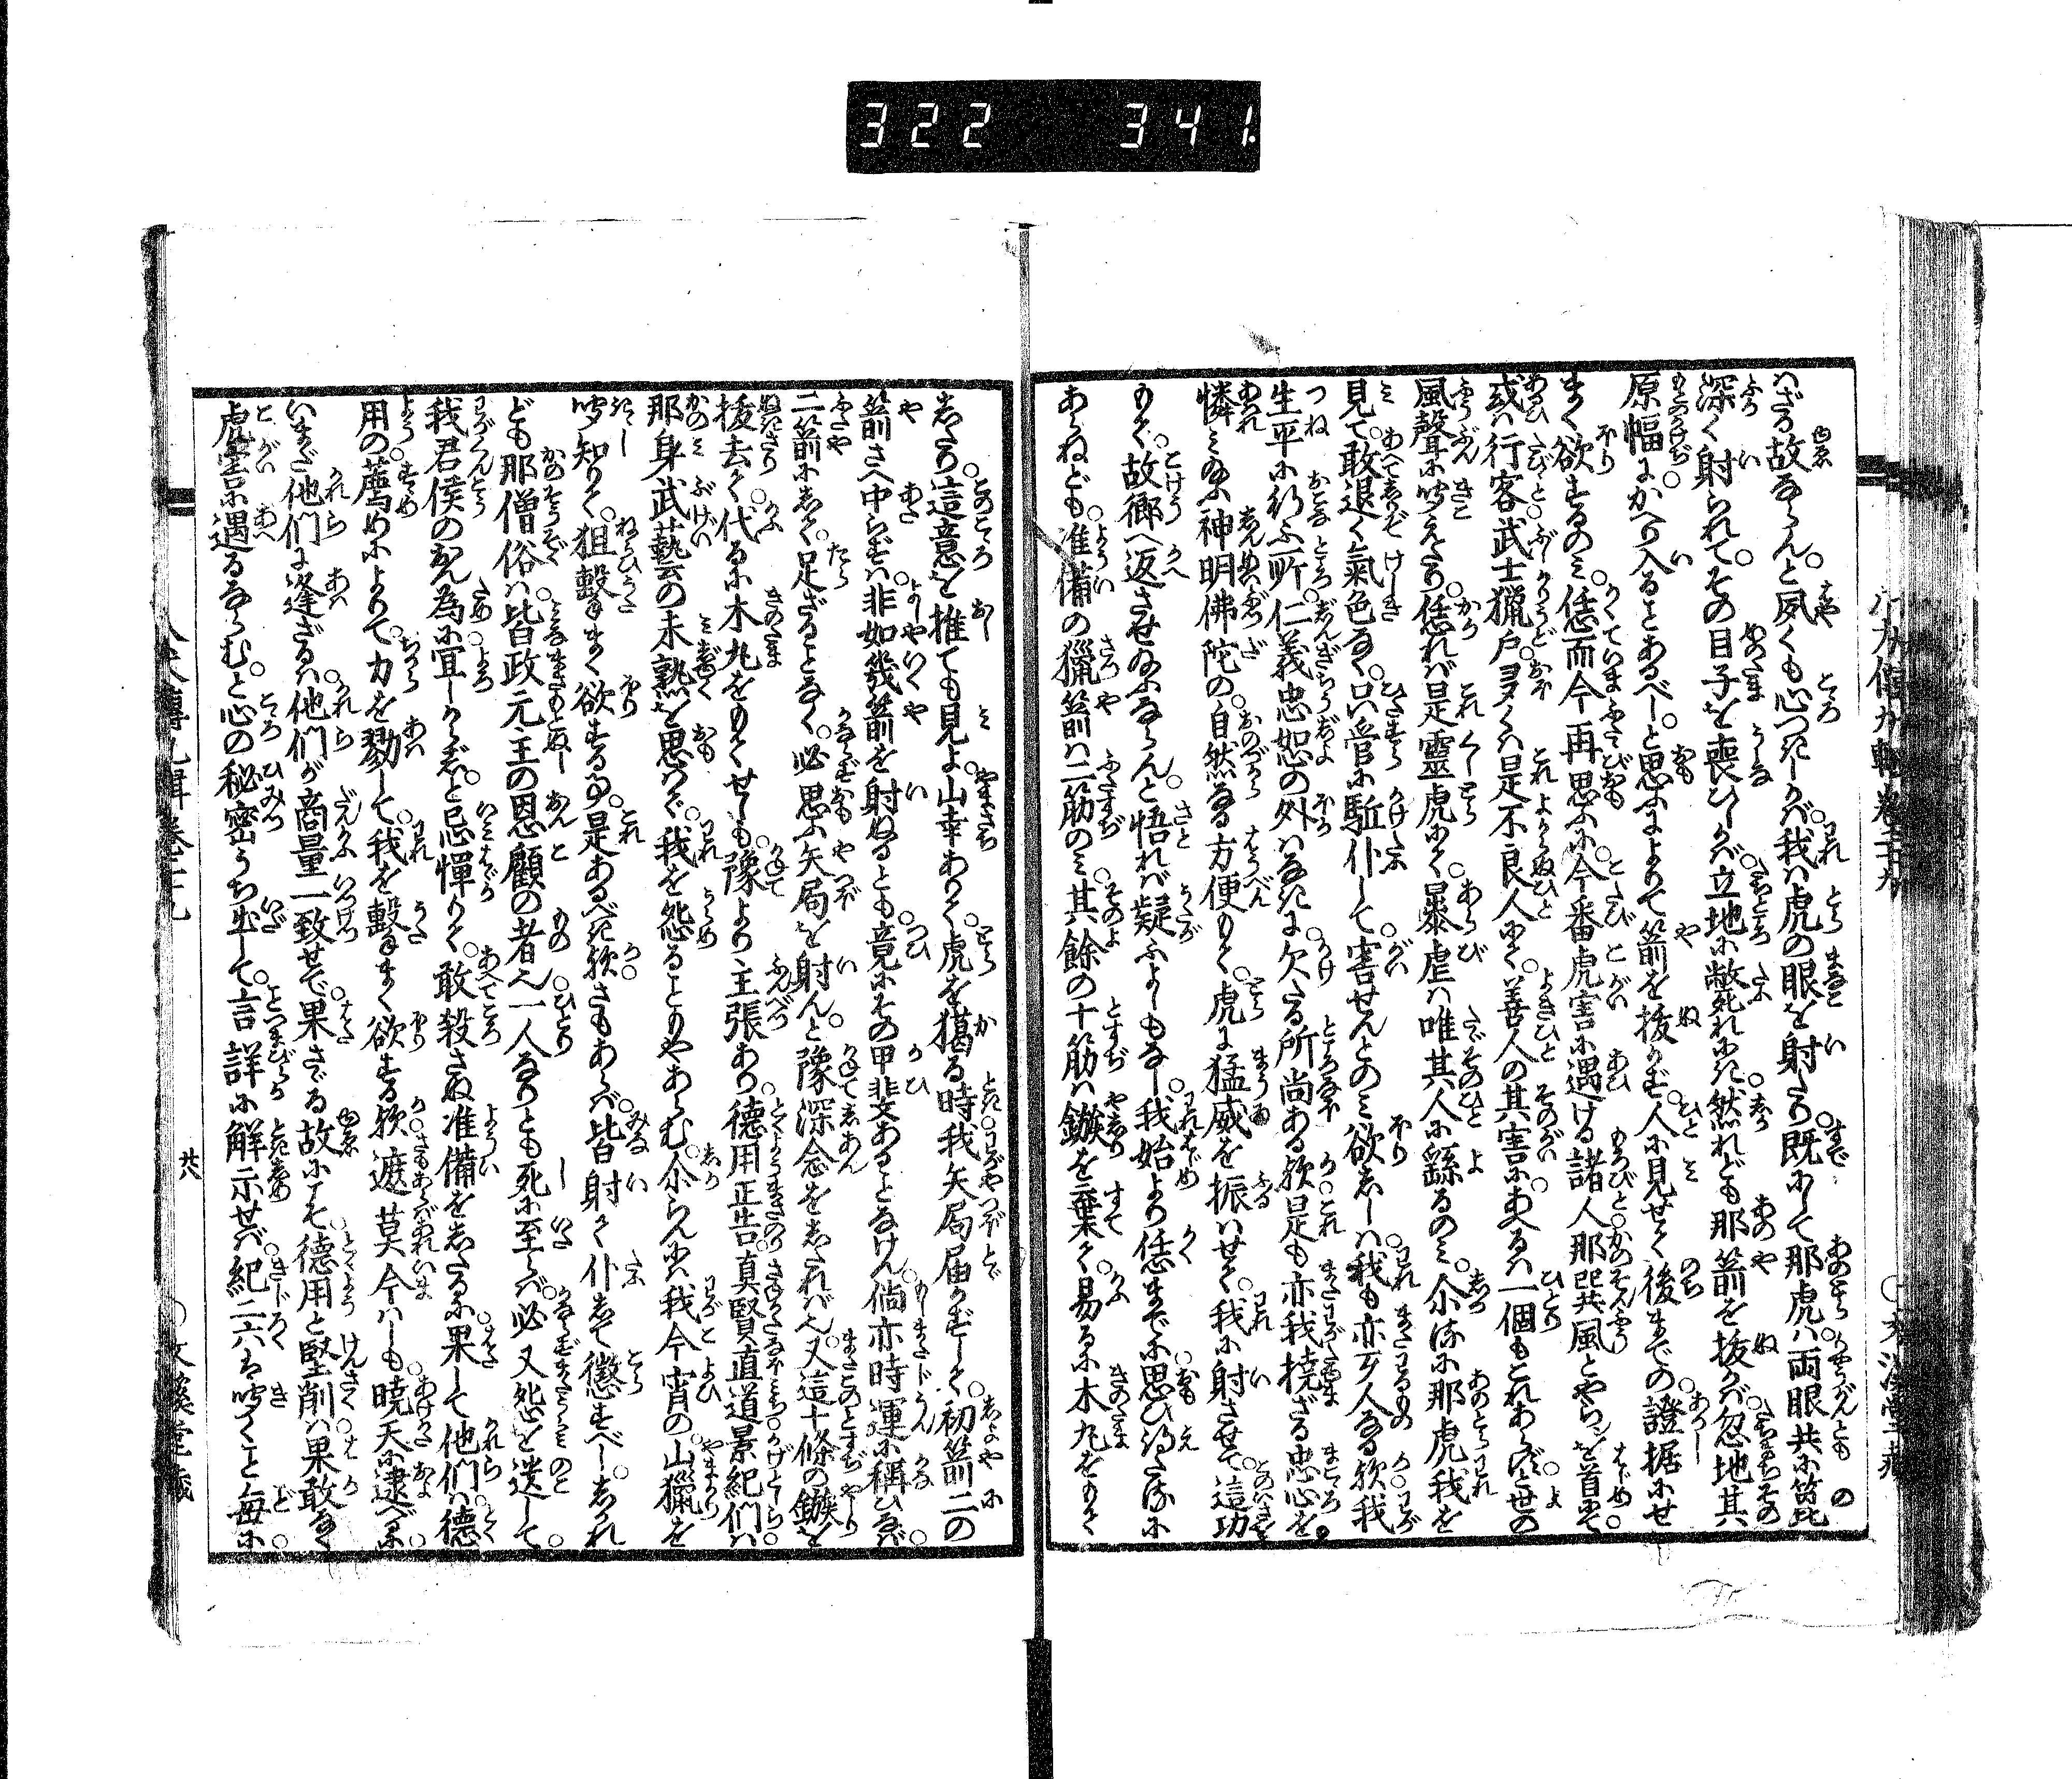 322 341.
八犬傳九輯卷二十九
はざる故ならんと夙くも心つきしかば我は虎の眼を射たり既にして那虎は両眼共に箆
深く射られてその目子を喪ひしかば立地に斃れにき然れども那箭を抜かば忽地其
原幅にかへり入ることあるべしと思ふによりて箭を抜かず人に見せて後までの證据にせ
まく欲するのみ恁而今再思ふに今番虎害に遇ける諸人那巽風とやらンを首にて
或は行客武士獵戸夛くは是不良人にて善人の其害にあへるは一個もこれあらずと世の
風聲に聞えたり恁れば是靈虎にて暴虐は唯其人に繇るのみ尒るに那虎我を
見て敢退く氣色なく只管に駈仆して害せんとのみ欲せしは我も亦歹人なる欤我
生平に行ふ所仁義忠恕の外はなきに欠たる所尚ある欤是も亦我撓ざる忠心を
憐み給ふ神明佛陀の自然なる方便もて虎に猛威を振はせて我に射させて這功
もて故郷へ返させ給ふならんと悟れば疑ふよしもなし我始より恁までに思ひ得たるに
あらねども准備の獵箭は二筋のみ其餘の十筋は鏃を棄て易るに木丸をもて
したり這意を推ても見よ山幸ありて虎を獵る時我矢局届かずして初箭二の
箭さへ中らずは非如幾箭を射ぬるとも竟にその甲斐あることなけん倘亦時運に稱ひなば
二箭にして足ざることなく必思ふ矢局を射んと豫深念をしたれば也又這十條の鏃を
拔去て代るに木丸をもてせしも豫より主張あり德用正告真賢直道景紀們は
那身武藝の未熟を思はで我を怨ることもやあらむ尒らんには我今宵の山獵を
聞知りて狙擊まく欲する事是あるべき欤さもあらば皆射て仆して懲すべししかれ
ども那僧俗は皆政元主の恩顧の者也一人なりとも死に至らば必又怨を遺して
我君侯のおん為に宜しからずと忌憚りて敢殺さぬ准備をしたるに果して他們は德
用の薦めによりて力を勠して我を擊まく欲する欤遮莫今はしも曉天に逮べるに
いまだ他們に逢ざるは他們が商量一致せで果さざる故にこそ德用と堅削は果敢なく
虎害に遇るならむと心の秘密うち出して言詳に解示せば紀二六は聞くこと毎に
八犬傳九輯卷二十九 廿八 〇文溪堂藏